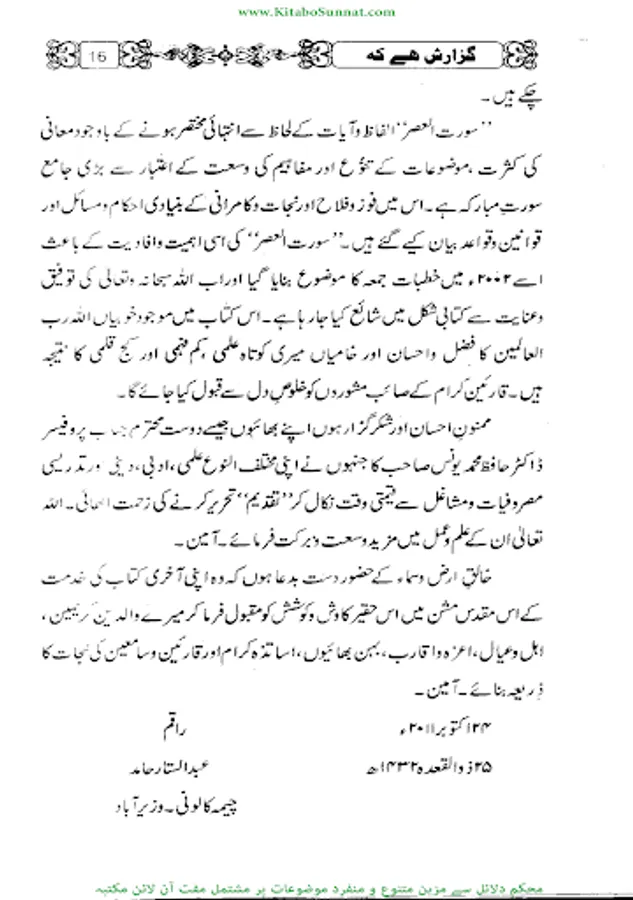 www.KitaboSunnat.com
گزارش ھے کہ
16
چکے ہیں۔
”سورت العصر“ الفاظ و آیات کے لحاظ سے انتہائی مختصر ہونے کے باوجود معانی
کی کثرت، موضوعات کے تنوُّع اور مفاہیم کی وسعت کے اعتبار سے بڑی جامع
سورت مبارکہ ہے۔ اس میں فوز و فلاح اور نجات و کامرانی کے بنیادی احکام و مسائل اور
قوانین و قواعد بیان کیے گئے ہیں۔ ”سورت العصر“ کی اسی اہمیت و افادیت کے باعث
اسے ۲۰۰۲ء میں خطبات جمعہ کا موضوع بنایا گیا اور اب اللہ سبحانہ وتعالی کی توفیق
وعنایت سے کتابی شکل میں شائع کیا جا رہا ہے۔ اس کتاب میں موجود خوبیاں اللہ رب
العالمین کا فضل و احسان اور خامیاں میری کوتاہ علمی، کم فہمی اور کج قلمی کا نتیجہ
ہیں۔ قارئین کرام کے صائب مشوردں کو خلوصِ دل سے قبول کیا جائے گا۔
ممنونِ احسان اور شکر گزار ہوں اپنے بھائیوں جیسے دوست محترم جناب پروفیسر
ڈاکٹر حافظ محمد یونس صاحب کا جنہوں نے اپنی مختلف النوع علمی، ادبی، دینی اور تدریسی
مصروفیات و مشاغل سے قیمتی وقت نکال کر ”تقدیم“ تحریر کرنے کی زحمت اٹھائی۔ اللہ
تعالیٰ ان کے علم و عمل میں مزید وسعت و برکت فرمائے۔ آمین۔
خالقِ ارض و سماء کے حضور دست بدعا ہوں کہ وہ اپنی آخری کتاب کی خدمت
کے اس مقدس مشن میں اس حقیر کاوش و کوشش کو مقبول فرما کر میرے والدین کریمین،
اہل و عیال، اعزہ و اقارب، بہن بھائیوں، اساتذہ کرام اور قارئین و سامعین کی نجات کا
ذریعہ بنائے۔ آمین۔
۲۴ اکتوبر ۲۰۱۱ء راقم
۲۵ ذوالقعدہ ۱۴۳۲ھ عبدالستار حامد
چیمہ کالونی۔ وزیر آباد
محکم دلائل سے مزین متنوع و منفرد موضوعات پر مشتمل مفت آن لائن مکتبہ